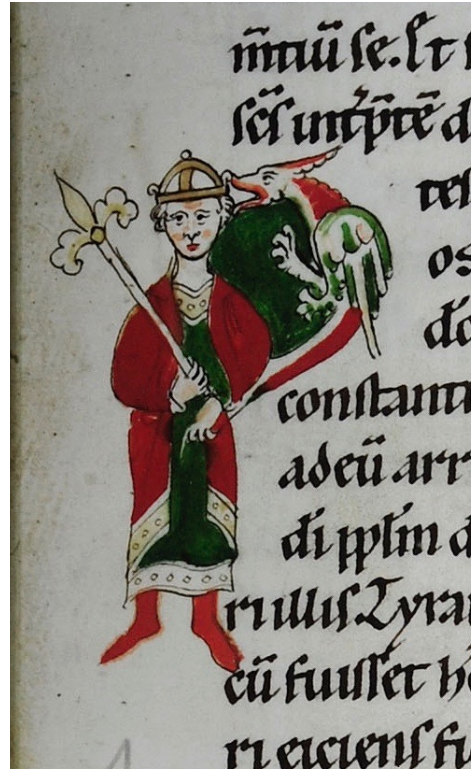 m̄tiū se. Et s
scs̄ int̄p̄tē d
tes
os
dō
constanti
ad eū arr
di pplm̄ d
ri illis Tyra
cū fuisset h
ri eiciens fi